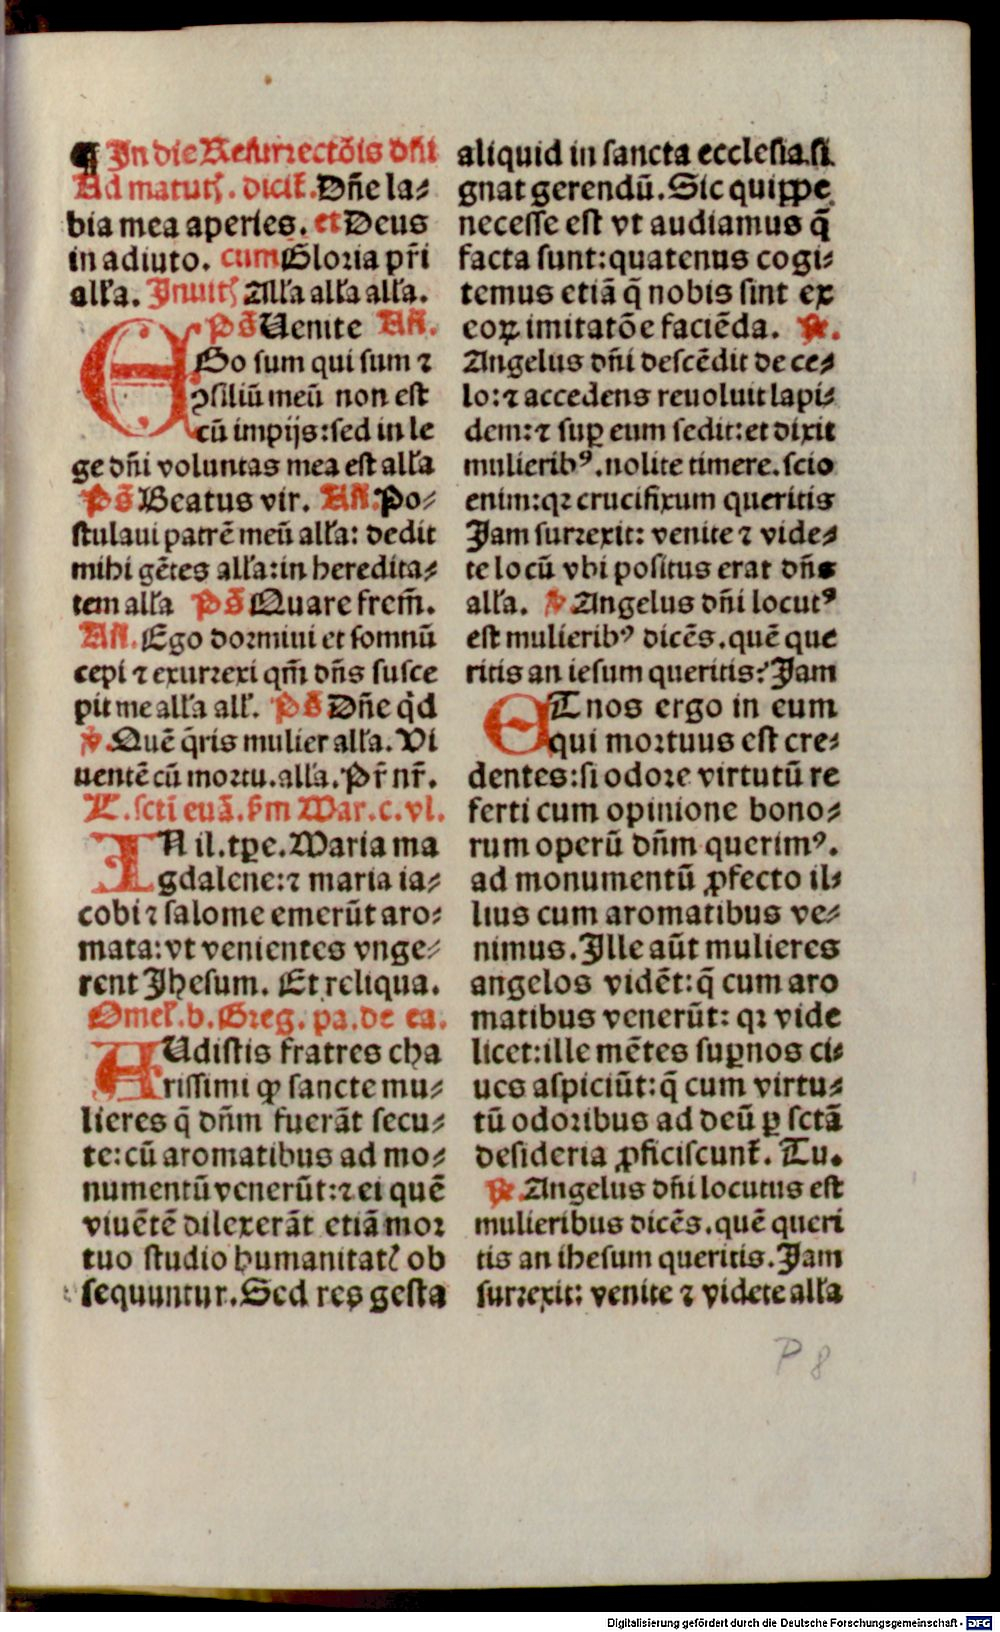 ¶ In die Resurrectõis dñi
Ad matutꝭ. dicit̃. Dñe la⸗
bia mea aperies. et Deus
in adiuto. cum Gloria pr̃i
all'a. Inuitꝭ All'a all'a all'a.
Ps̃ Uenite Añ.
EGo sum qui sum ⁊
ꝯsiliũ meũ non est
cũ impijs: sed in le
ge dñi voluntas mea est all'a
Ps̃ Beatus vir. Añ. Po⸗
stulaui patrẽ meũ all'a: dedit
mihi gẽtes all'a: in heredita⸗
tem all'a Ps̃ Quare frem̃.
Añ. Ego dormiui et somnũ
cepi ⁊ exurrexi qm̃ dñs susce
pit me all'a all'. Ps̃ Dñe q̃d
℣. Quẽ q̃ris mulier all'a. Vi
uentẽ cũ mortu. all'a. Pr̃ nr̃.
L. scti euã. s̃m Mar. c. vl.
IN il. tꝑe. Maria ma
gdalene: ⁊ maria ia⸗
cobi ⁊ salome emerũt aro⸗
mata: vt venientes vnge⸗
rent Jhesum. Et reliqua.
Omel'. b. Greg. pa. de ea.
AUdistis fratres cha
rissimi ꝙ sancte mu⸗
lieres q̃ dñm fuerãt secu⸗
te: cũ aromatibus ad mo⸗
numentũ venerũt: ⁊ ei quẽ
viuẽtẽ dilexerãt etiã mor
tuo studio humanitatꝭ ob
sequuntur. Sed res gesta
aliquid in sancta ecclesia si
gnat gerendũ. Sic quippe
necesse est vt audiamus q̃
facta sunt: quatenus cogi⸗
temus etiã q̃ nobis sint ex
eoꝝ imitatõe faciẽda. ℟.
Angelus dñi descẽdit de ce⸗
lo: ⁊ accedens reuoluit lapi⸗
dem: ⁊ suꝑ eum sedit: et dixit
mulieribꝰ. nolite timere. scio
enim: qꝛ crucifixum queritis
Jam surrexit: venite ⁊ vide⸗
te locũ vbi positus erat dñs
all'a. ℣ Angelus dñi locutꝰ
est mulieribꝰ dicẽs. quẽ que
ritis an iesum queritis? Jam
ETnos ergo in eum
qui mortuus est cre⸗
dentes: si odore virtutũ re
ferti cum opinione bono⸗
rum operũ dñm querimꝰ.
ad monumentũ ꝓfecto il⸗
lius cum aromatibus ve⸗
nimus. Ille aũt mulieres
angelos vidẽt: q̃ cum aro
matibus venerũt: qꝛ vide
licet: ille mẽtes suꝑnos ci⸗
ues aspiciũt: q̃ cum virtu⸗
tũ odoribus ad deũ ꝑ sctã
desideria ꝓficiscunt̃. Tu.
℟. Angelus dñi locutus est
mulieribus dicẽs. quẽ queri
tis an ihesum queritis. Jam
surrexit: venite ⁊ videte all'a
P 8
Digitalisierung gefördert durch die Deutsche Forschungsgemeinschaft - DFG